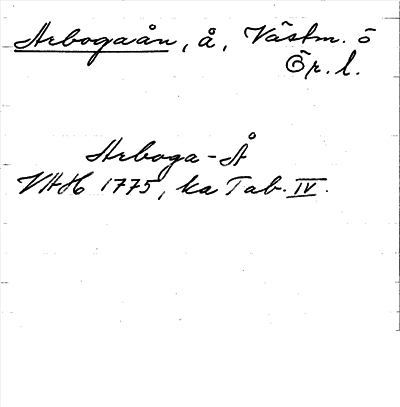 Arbogaån, å, Västm. o
Ör. l.
Arboga-Å
VAH 1775, ka Tab. IV.